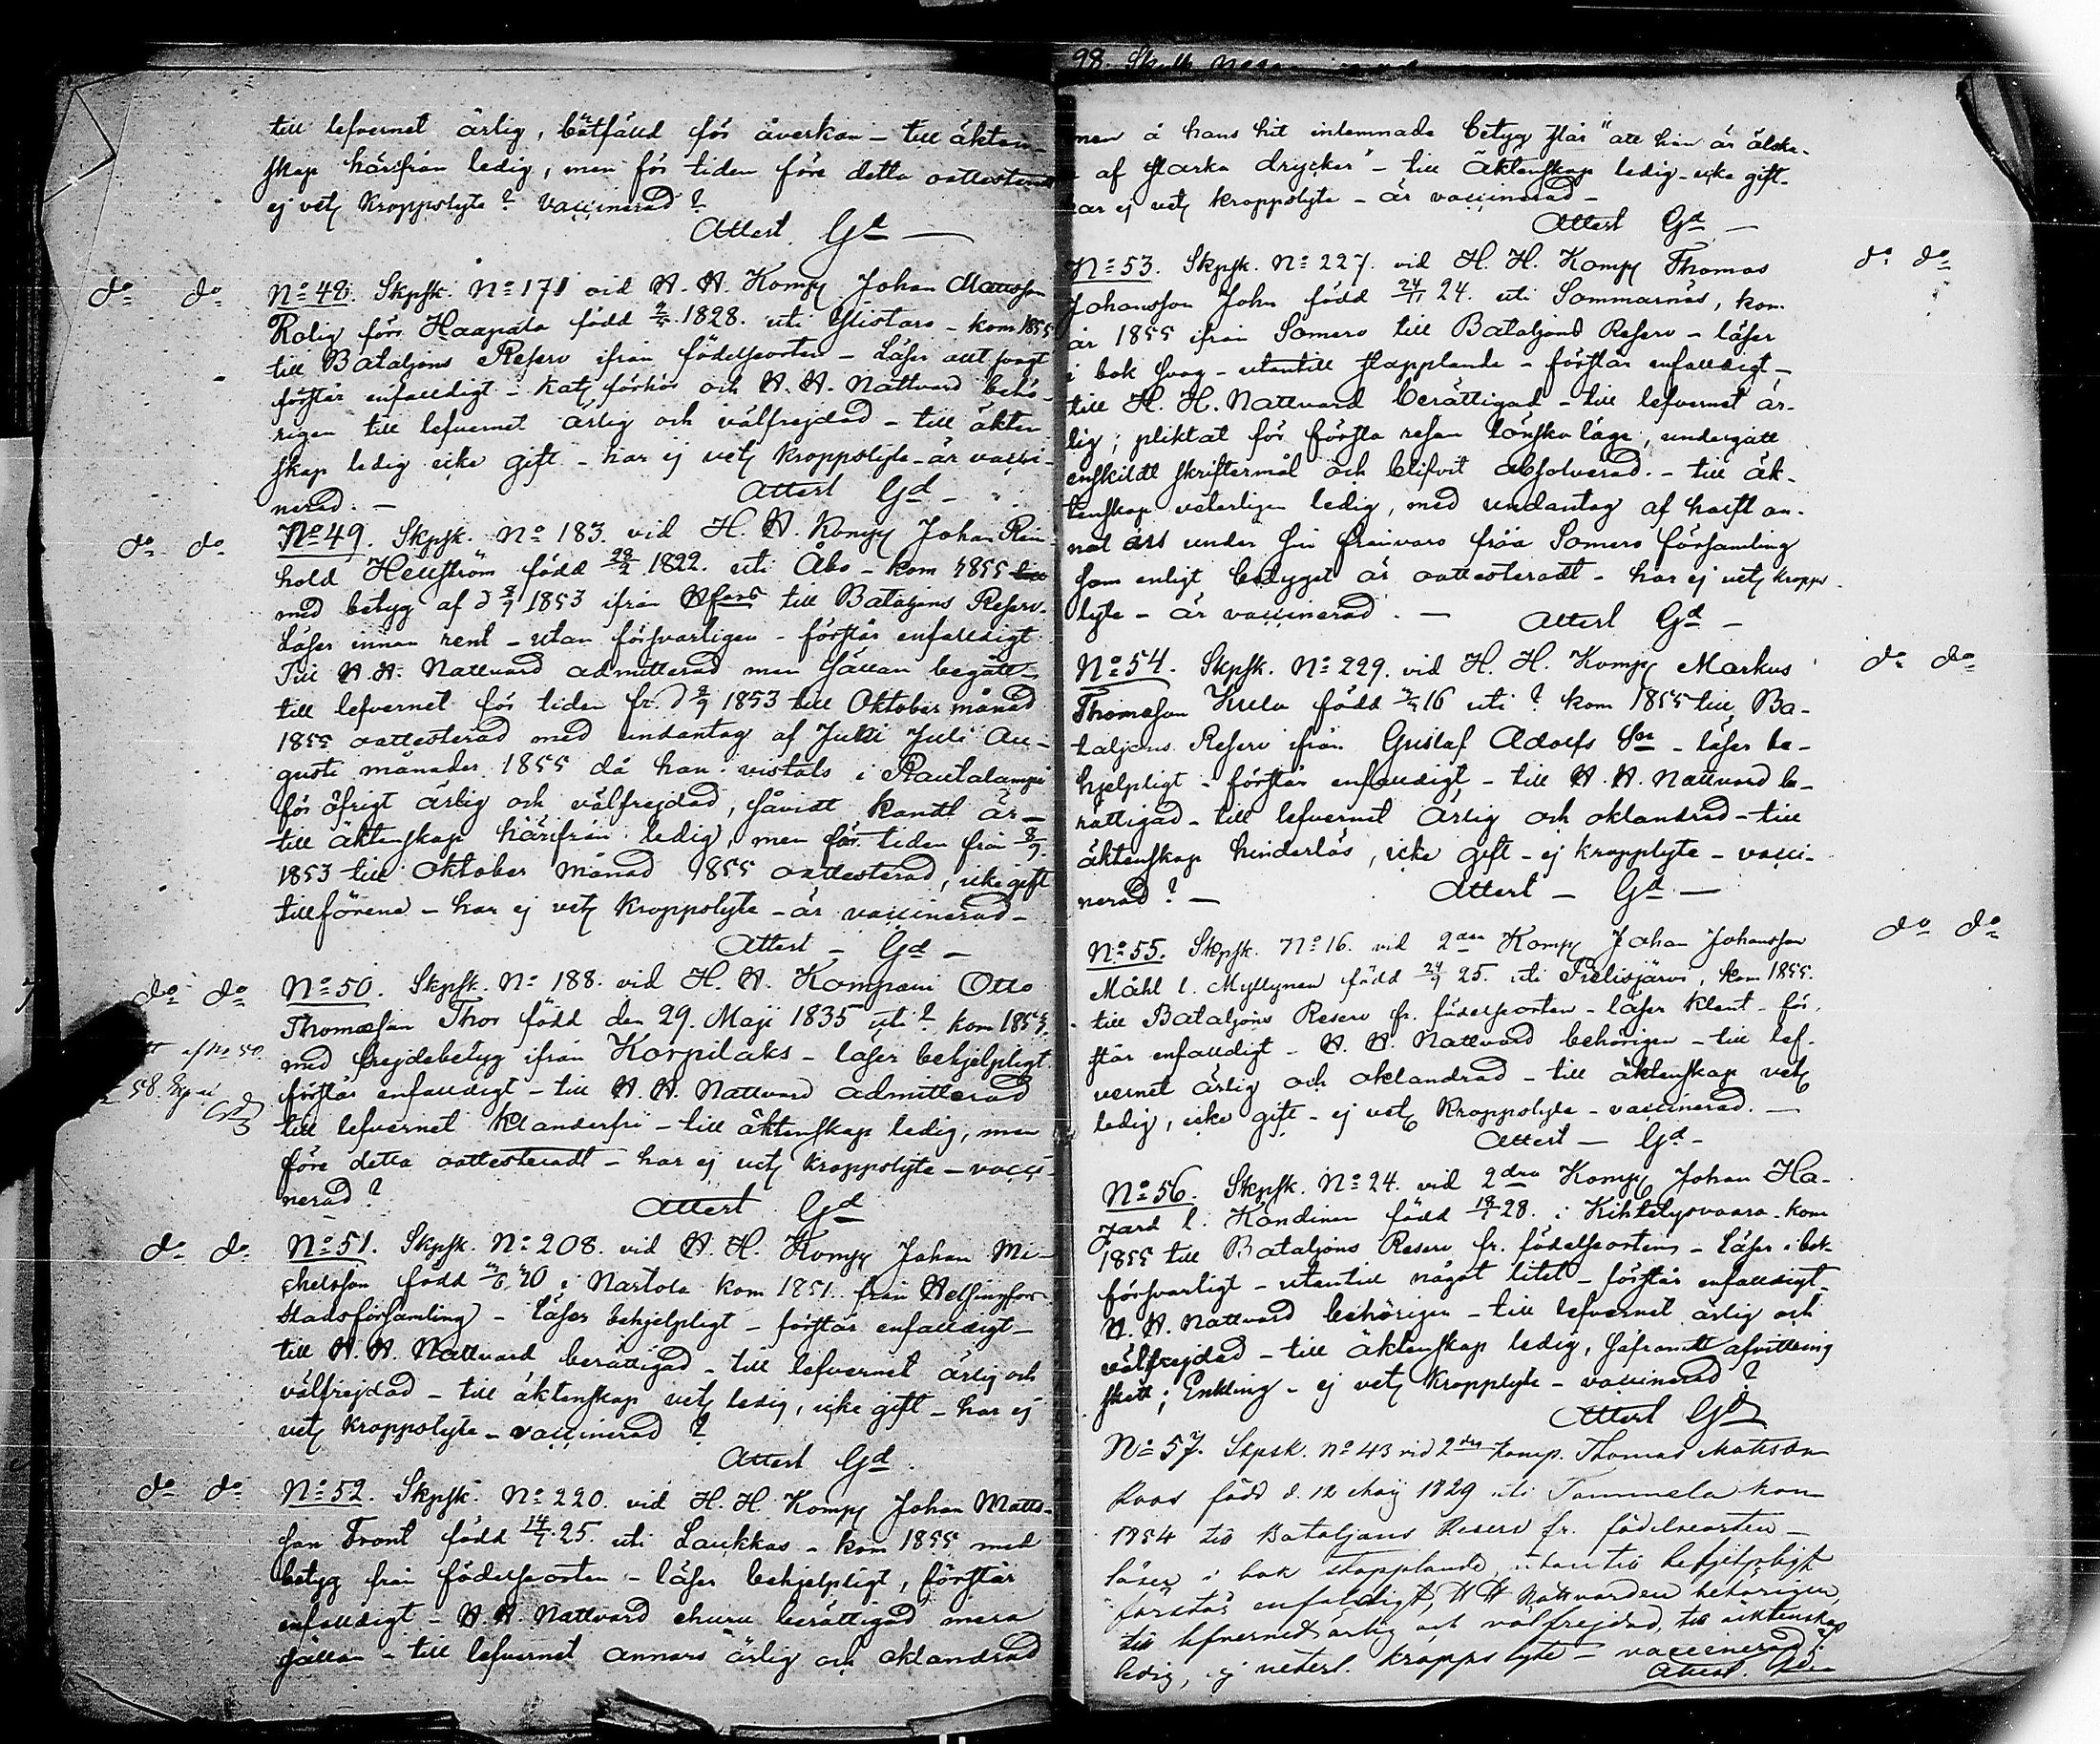 till lefvernet ärlig, bötfälld för åverkan – till äkten-
skap härifrån ledig, men för tiden före detta oattesterad
ej vetl kroppslyte? Vaccinerad?
Attest Gd —
do do No 48. Skpsk. No 171 vid H. H. Komp Johan Mattsson
Rolig förr Haapala född 1828. uti Ylistaro – kom 1855
till Bataljons Reserv ifrån födelseorten – Läser allt svagt
förstår enfalldigt – Kat. förhör och H. H. Nattvard behö-
rigen till lefvernet ärlig och välfrejdad – till äkten-
skap ledig icke gift – har ej vetl kroppslyte – är vacci-
nerad. –
Attest Gd –
do do No 49. Skpsk. No 183. vid H. H. Komp Johan Rein-
hold Hellström född 28/2 1822. uti Åbo – kom 1855
med betyg af d 8/9 1853 ifrån till Bataljons Reserv.
Läser innan rent – utan försvarligen – förstår enfalldigt
Till H. H. Nattvard admitterad men sällan begått –
till lefvernet för tiden fr. d 8/9 1853 till Oktober månad
1855 oattesterad med undantag af Juni Juli Au-
gusti månader 1855 då han vistats i Rautalampi
för öfrigt ärlig och välfrejdad, såvidt kändt är –
till äktenskap härifrån ledig, men för tiden från 8/9
1853 till Oktober månad 1855 oattesterad, icke gift
tillförene – har ej vetl kroppslyte – är vaccinerad –
Attest – Gd –
do do No 50. Skpsk. No 188. vid H. H. Kompani Otto
Thomasson Thor född den 29. Maji 1835 uti? kom 1855.
af No 50. med frejdebetyg ifrån Korpilaks – läser behjelpligt
58. förstår enfalldigt – till H. H. Nattvard admitterad
till lefvernet klanderfri – till äktenskap ledig, men
före detta oattesteradt – har ej vetl kroppslyte – vacci-
nerad?
Attest Gd
do do No 51. Skpsk. No 208. vid H. H. Komp Johan Mi-
chelsson född 20 i Nastola kom 1851 från Helsingfors
Stadsförsamling – läser behjelpligt – förstår enfalldigt –
till H. H. Nattvard berättigad – till lefvernet ärlig och
välfrejdad – till äktenskap vetl ledig, icke gift – har ej
vetl kroppslyte – vaccinerad?
Attest Gd.
do do No 52. Skpsk. No 220. vid H. H. Komp Johan Matts-
son Front född 14/7 25. uti Laukkas – kom 1855 med
betyg från födelseorten – läser behjelpligt, förstår
enfalldigt – H. H. Nattvard ehuru berättigad mera
sällan – till lefvernet annars ärlig och oklandrad
98.
men å hans hit inlemnade betyg står "att han är älska-
e af starka drycker" – till äktenskap ledig – icke gift –
har ej vetl kroppslyte – är vaccinerad –
Attest Gd –
No 53. Skpsk. No 227. vid H. H. Komp Thomas do do
Johansson John född 24/11 24. uti Sommarnäs, kom
år 1855 ifrån Somero till Bataljons Reserv – läser
i bok svag – utantill stapplande – förstår enfalldigt –
till H. H. Nattvard berättigad – till lefvernet är-
lig; pliktat för första resan lönskaläge, undergått
enskildt skriftermål och blifvit absolverad. – till äk-
tenskap veterligen ledig, med undantag af halft an-
nat års under sin frånvaro från Somero församling
som enligt betyget är oattesteradt – har ej vetl kropps-
lyte – är vaccinerad. —
Attest Gd –
No 54. Skpsk. No 229. vid H. H. Komp Markus do do
Thomasson Kula född 16 uti? kom 1855 till Ba-
taljons Reserv ifrån Gustaf Adolfs – läser be-
hjelpligt – förstår enfalldigt – till H. H. Nattvard be-
rättigad – till lefvernet ärlig och oklandrad – till
äktenskap hinderlös, icke gift – ej kropplyte – vacci-
nerad? –
Attest – Gd —
No 55. Skpsk. No 16. vid 2dra Komp Johan Johansson do do
Måhl l. Myllynen född 24/9 25. uti Pielisjärvi, kom 1855.
till Bataljons Reserv fr. födelseorten – läser klent – för-
står enfalldigt – H. H. Nattvard behörigen – till lef-
vernet ärlig och oklandrad – till äktenskap vetl
ledig, icke gift – ej vetl kroppslyte – vaccinerad. —
Attest – Gd –
No 56. Skpsk. No 24. vid 2dra Komp Johan Ha-
zard l. Kandinen född 28. i Kihtelysvaara – kom
1855 till Bataljons Reserv fr. födelseorten – läser i bok
försvarligt – utantill något litet – förstår enfalldigt –
H. H. Nattvard behörigen – till lefvernet ärlig och
välfrejdad – till äktenskap ledig, såframt afvittring
skett; Enkling – ej vetl kropplyte – vaccinerad?
Attest Gd
No 57. Skpsk. No 43 vid 2dra Komp. Thomas Mattsson
Roos född d. 12 Maj 1829 uti Tammela kom
1854 till Bataljons Reserv fr. födelseorten –
läser i bok stapplande, utantill behjelpligt
förstår enfaldigt, H H Nattvarden behörigen,
till lefvernet ärlig och välfrejdad, till äktenskap
ledig, ej veterl. kroppslyte – vaccinerad?
Attest.